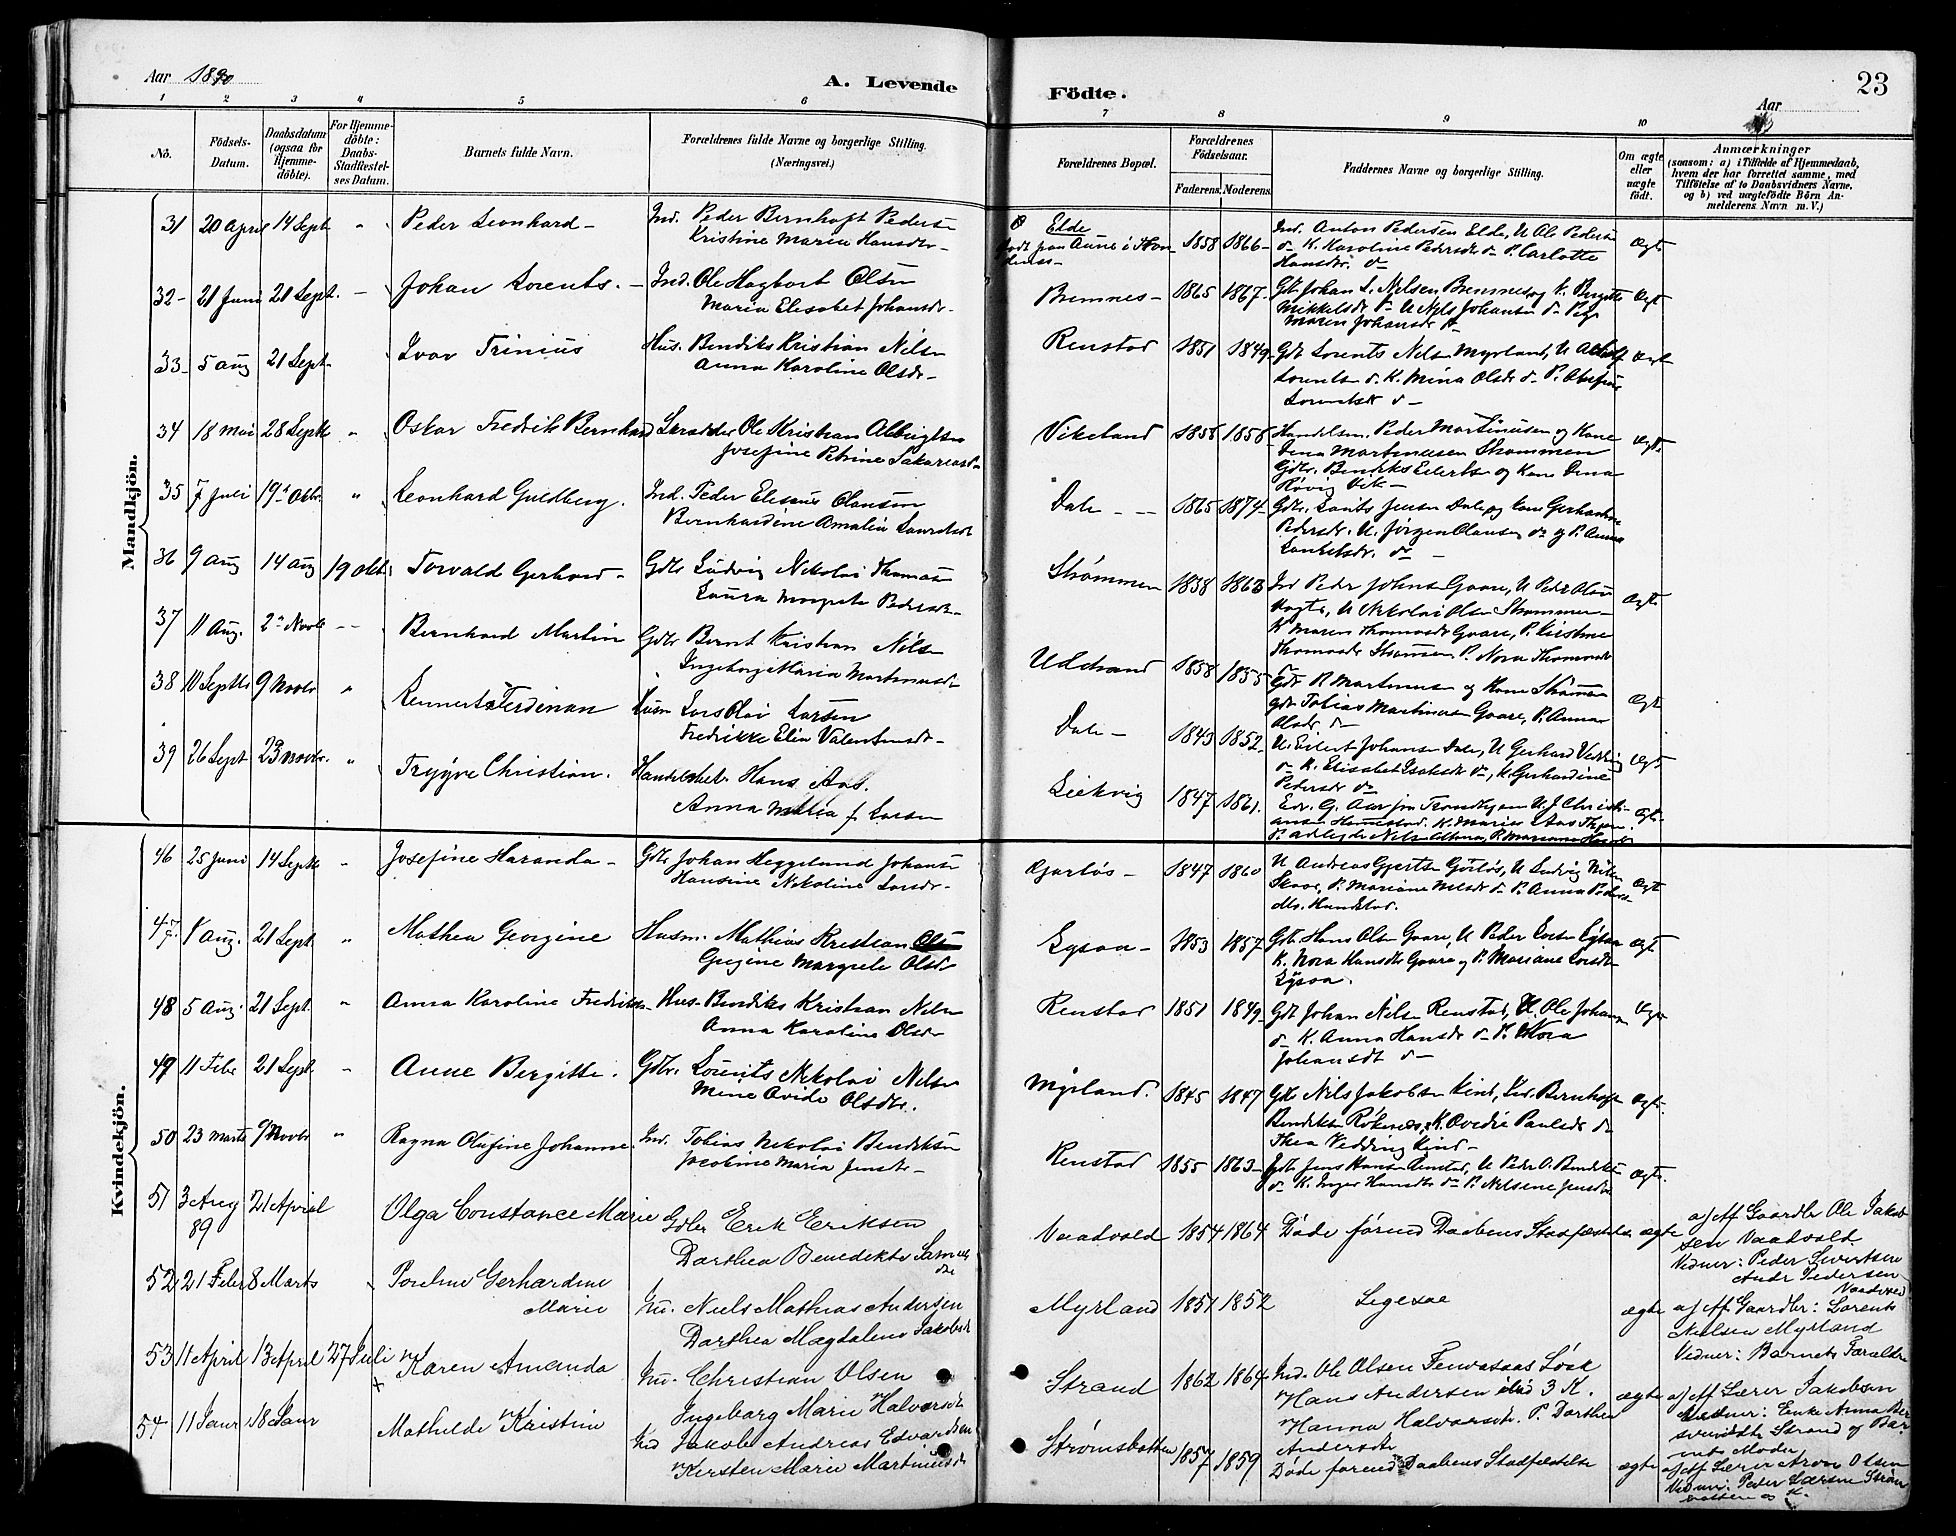 Aar 1890
A. Levende
Födte.
Aar
23
1 2 3 4 5 6 7 8 9 10
No.
Födsels-Datum.
Daabsdatum (ogsaa for Hjemme-döbte).
For Hjemme-döbte: Daabs-Stadfæstel-ses Datum.
Barnets fulde Navn.
Forældrenes fulde Navne og borgerlige Stilling.
(Næringsvei.)
Forældrenes Bopæl.
Forældrenes Födselsaar.
Faderens. Moderens.
Faddernes Navne og borgerlige Stilling.
Om ægte eller uægte födt.
Anmærkninger
(saasom: a) i Tilfælde af Hjemmedaab,
hvem der har forrettet samme, med
Tilföielse af to Daabsvidners Navne,
og b) ved uægtefödte Börn An-
melderens Navn m. V.)
Mandkjön.
31 20 April 14 Sept. " Peder Leonhard - Ind. Peder Bernhoft Peders
Kristine Maria Hansdr. Elde 1858 1866 Ind. Anton Pedersen Elde, U Ole Peders
K. Karoline Pedersdr P. Carlotte
Hansdr. Ægte
32 21 Juni 21 Sept. - Johan Lorents. - Ind. Ole Hagbart Olsen
Maria Elisabet Johansdr. Bremnes 1865 1867 Gdr Johan L. Nilsen Bremnes og K. Birgitte
Mikkelsdr U Nils Johansen
Maren Johansdr Ægt
33 5 aug 21 Sept. Ivar Trinius Hus. Bendiks Kristian Nilsen
Anna Karoline Olsdr. Renstad 1851 1849 Gdr Lorents Nilsen Myrland, U
Lorentsen K. Mina Olsdr P.
Lorentsdr Ægt
34 18 mai 28 Septb " Oskar Fredrik Bernhard Skrædder Ole Kristian
Josefine Petrine Sakariasdr Vikeland 1858 1858 Handelsm. Peder Martinusen og Kone
Dina Martinusen Strømmen
Gdr. Bendiks Eilertsen og Kone Dina
Røvig Vik Ægte
35 7 Juli 19 Oktr. " Leonhard Guldberg. Ind. Peder Eliseus Clausen
Bernhardine Amalia Lauritsdr Dale 1865 1874 Gdr. Lorits Jensen Dale og kone Gerhardine
Pedersdr. U. Jørgen Clausen og P. Anna
36 9 Aug 14 aug 19 okt. Torvald Gerhard - Gdr Ludvig Nikolai Thomasen
Laura Margrete Pedersdr. Strømmen 1838 1863 Ind Peder Johnsen Gaare, U Peder Olsen
Vogts, U Nikolai Olsen Strømmen
K Maren Thomasdr Gaare, P. Kirstine
Thomasdr Strømmen P. Nora Thomasdr Ægte
37 11 Aug. 2 Novb -- Bernhard Martin Gdr Bernt Kristian Nilsen
Ingeborg Maria Martinusdr Udstrand 1858 1855 Gdr P Martinusen og Kone Strømmen
gdr Tobias Martinusen Gaare, P. Anna
Olsdr Ægte
38 10 Septb 9 Novbr " Lennert Ferdinan Husm Lars Olai Larsen
Fredrikke Elin Valentinsdr. Dale - 1843 1852 U. Eilert Johansen Dale, U Gerhard Vedding
K. Elisabet Isaksdr K. Gerhardine
Pedersdr Ægte
39 26 Sept 23 Novbr. " Trygve Christian. Handelsbet. Hans Aas.
Anna Milla f Larsen Leikvig 1847 1861. Edv. G. Aas fra Trondhjem U. J Christi-
ansen Harrestad. K. Marie Aas Thjem. Ægte
Kvindekjön.
46 25 Juni 14 Septb " Josefine Haranda - Gdr Johan Heggeland Johansen
Hansine Nikoline Larsdr. Gjærløs - 1847 1860 U Andreas Gjertsen Gjerløs, U Ludvig Nilsen
Skaar, P. Mariane Nilsdr P. Anna Peders-
dtr. Handstad. Ægte
47. 1 Aug. 21 Sept. " Mathea Georgine Husm. Mathias Kristian Olsen
Gurgine Margrete Olsdr Egsaa - 1853 1857 Gdr Hans Olsen Gaare, U Peder Larsen
K. Nora Hansdtr Gaare og P. Mariane Larsdtr
Egsaa. Ægte
48 5 Aug. 21 Sept. " Anna Karoline Fredrikke Hus. Bendiks Kristian Nilsen
Anna Karoline Olsdr Renstad 1851 1849 Gdr Johan Nilsen Renstad, U. Ole Johansen
K. Anna Hansdr P. Nora
Johansdt Ægte
49 11 Febr 21 Sept. - Anne Bergitte. Gdbr. Lorents Nikolai Nilsen
Mine Ovide Olsdtr. Myrland. 1845 1847 Gdr Nils Jakobsen Kind, Bernhoft
Bendiksen Røkenes, K. Ovedie Paulsdr
Thea Vedding Kind - Ægte.
50 23 marts 9 Novbr " Ragna Olufine Johanne. Ind. Tobias Nikolai Bendiksen
Jacobine Maria Jensdr. Renstad 1855 1863 Gdr Jens Hansen Renstad, U Peder O. Bendiksen
K. Inger Hansdtr P. Nilsine Jensdr Ægte.
51 3 Aug 89 21 April Olga Constance Marie Gdbr Erik Eriksen
Dorthea Benedikte Samuelsdtr Vaadvold 1854 1864 Døde førend Daabens Stadfæstelse ægte af Gaardbr Ole Jakob
sen Vaadvold
Vidner: Peder Sivertsen
Andr Pedersen
Vaadvold
52 21 Febr 8 Marts Pauline Gerhardine
Marie In. Niels Mathias Andersen
Dorthea Magdalena Jakobsdr Myrland 1851 1852 Ligesaa ægte af Gaardbr: Lorents
Nielsen Myrland
Vidner: Barnets Forældre
53 11 April 13 April 27 Juli Karen Amanda In. Christian Olsen
Ingeborg Marie Halvorsdr Strand 1862 1864 Ind. Ole Olsen Løsk
Hans Andersen 3 K.
Hanna Halvorsdr. P. Dorthea
Andersdtr ægte af Lærer Jakobsen
Vidner: Enke Anna Ber
Strand og Bar
nets Moder
54 11 Janr 18 Janr Mathilde Kristine Ind Jakob Andreas Edvardsen
Kirsten Marie Martinusdr Strømsbotten 1857 1859 Døde førend Daabens Stadfæstelse ægte af Lærer Aron Olsen
Vidner: Peder Larsen Strøm
botten og K.